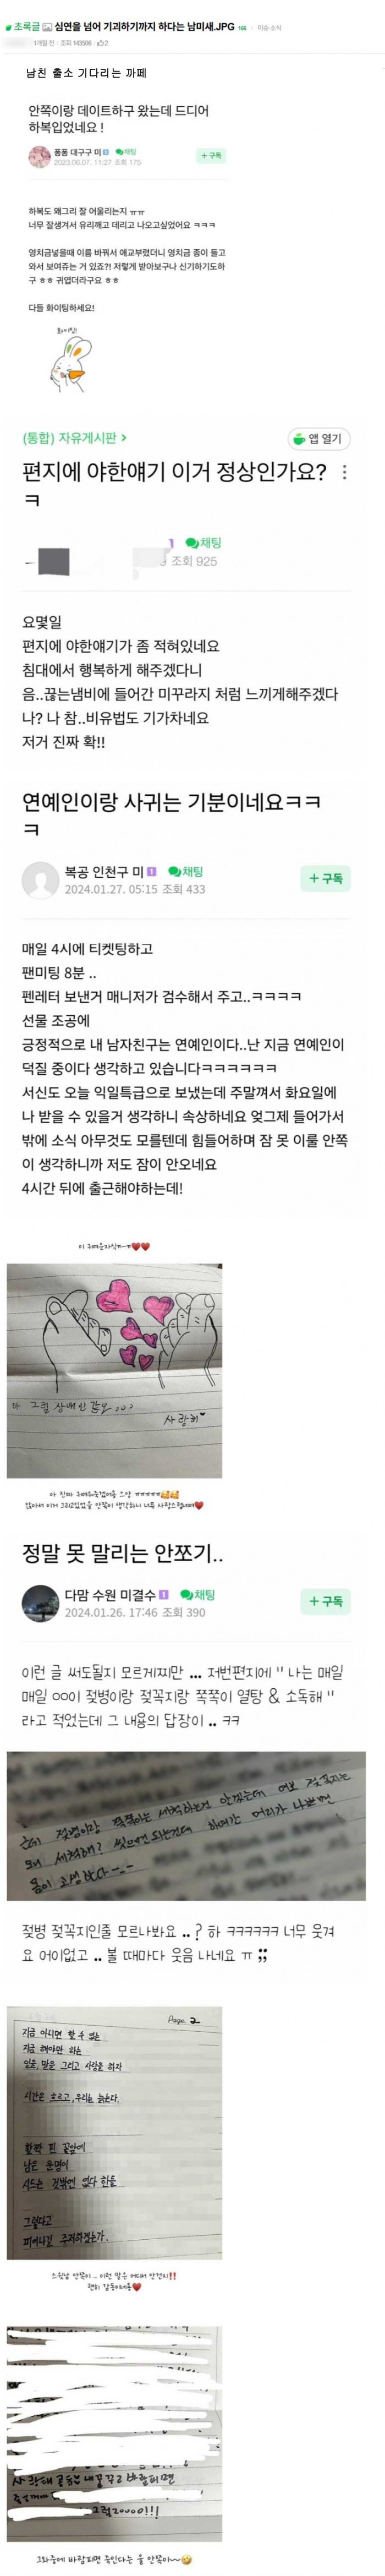 초록글 심연을 넘어 기괴하기까지 하다는 남미새.JPG 166 이슈·소식
1개월 전 · 조회 143506 · 2
남친 출소 기다리는 까페
안쪽이랑 데이트하구 왔는데 드디어
하복입었네요 !
퐁퐁 대구구 미 1 채팅
2023.06.07. 11:27 조회 175
+ 구독
하복도 왜그리 잘 어울리는지 ㅠㅠ
너무 잘생겨서 유리깨고 데리고 나오고싶었어요 ㅋㅋㅋ
영치금넣을때 이름 바꿔서 애교부렸더니 영치금 종이 들고
와서 보여쥬는 거 있죠?! 저렇게 받아보구나 신기하기도하
구 ㅎㅎ 귀엽더라구요 ㅎㅎ
다들 화이팅하세요!
화이팅!
(통합) 자유게시판 >
앱 열기
편지에 야한얘기 이거 정상인가요?
ㅋ
채팅
조회 925
요몇일
편지에 야한얘기가 좀 적혀있네요
침대에서 행복하게 해주겠다니
음..끊는냄비에 들어간 미꾸라지 처럼 느끼게해주겠다
나? 나 참..비유법도 기가차네요
저거 진짜 확!!
연예인이랑 사귀는 기분이네요ㅋㅋ
ㅋ
복공 인천구 미 1 채팅
2024.01.27. 05:15 조회 433
+ 구독
매일 4시에 티켓팅하고
팬미팅 8분 ..
펜레터 보낸거 매니저가 검수해서 주고..ㅋㅋㅋㅋ
선물 조공에
긍정적으로 내 남자친구는 연예인이다..난 지금 연예인이
덕질 중이다 생각하고 있습니다ㅋㅋㅋㅋㅋㅋ
서신도 오늘 익일특급으로 보냈는데 주말껴서 화요일에
나 받을 수 있을거 생각하니 속상하네요 엊그제 들어가서
밖에 소식 아무것도 모를텐데 힘들어하며 잠 못 이룰 안쪽
이 생각하니까 저도 잠이 안오네요
4시간 뒤에 출근해야하는데!
이 귀여운자식ㅠㅠ
사랑해
정말 못 말리는 안쪼기..
다맘 수원 미결수 1 채팅
2024.01.26. 17:46 조회 390
+ 구독
이런 글 써도될지 모르게찌만 ... 저번편지에 " 나는 매일
매일 ㅇㅇ이 젖병이랑 젖꼭지랑 쪽쪽이 열탕 & 소독해 "
라고 적었는데 그 내용의 답장이 .. ㅋㅋ
근데 젖병이랑 쪽쪽이는 세척하는건 알겠는데 여보 젖꼭지는
왜 세척해? 씻으면 되는건데 하여간 머리가 나쁘면
몸이 고생한다---
젖병 젖꼭지인줄 모르나봐요 ..? 하 ㅋㅋㅋㅋㅋㅋ 너무 웃겨
요 어이없고 .. 볼 때마다 웃음 나네요 ㅠ ;;
Page. 2
지금 아니면 할 수 없는
지금 해야만 하는
일을, 말을 그리고 사랑을 하자
시간은 흐르고, 우리는 늙는다.
활짝 핀 꽃앞에
남은 운명이
시드는 것밖엔 없다 한들
그렇다고
피어나길 주저하겠는가.
스윗남 안쪽이 .. 이런 말은 어디서 안건지!!
사랑해
바람피면
그럴거야!!!
그와중에 바람피면 죽인다는 울 안쪽이~~